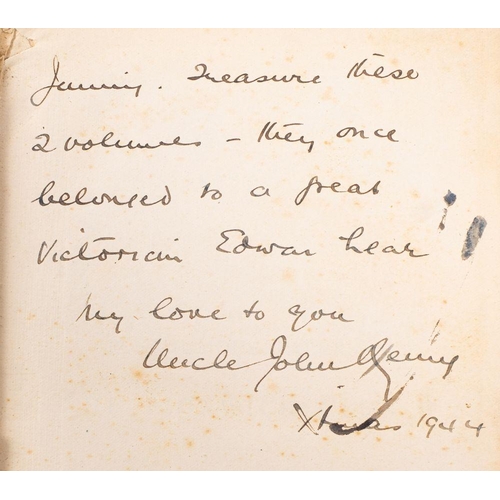 Treasure these
2 volumes – they once
belonged to a great
Victorian Edwar Lear!
My love to you
Uncle John
Xmas 1944